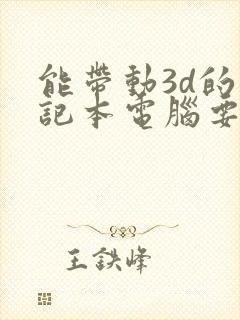 能帶動3d的
記本電腦要
王鉄峰